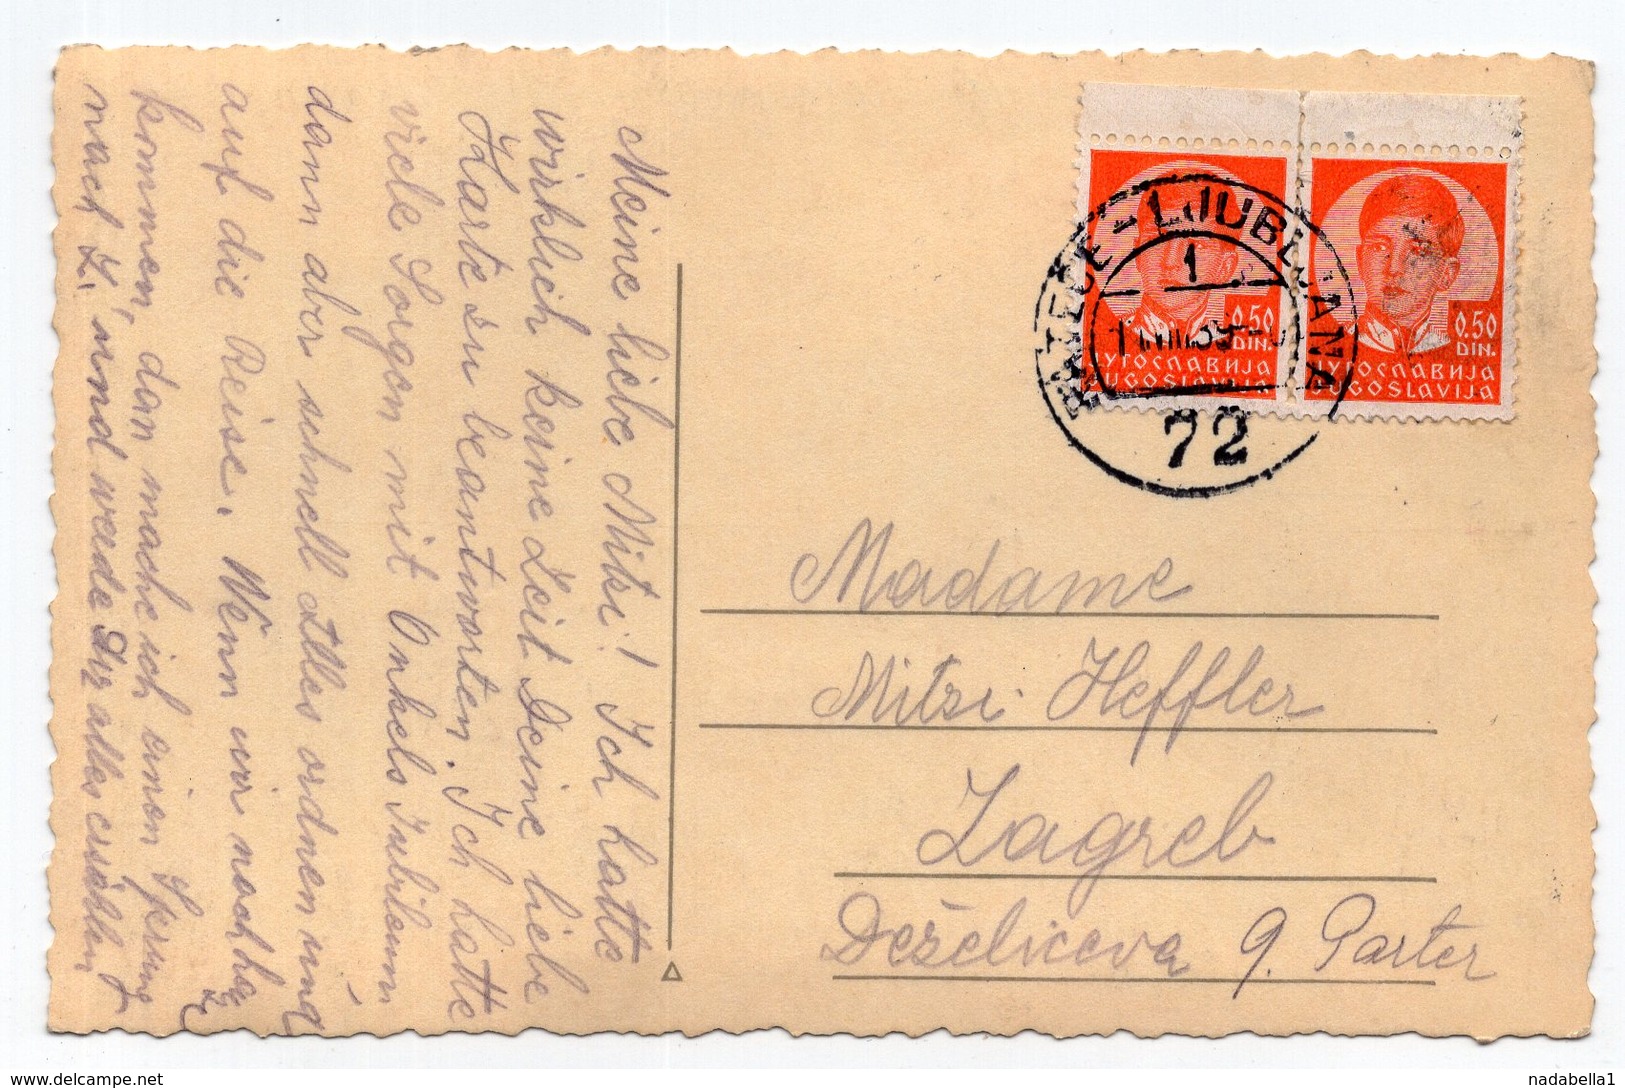 Meine liebe Mitzi! Ich hatte
wirklich keine Zeit Deine liebe
Karte zu beantworten. Ich hatte
viele Sorgen mit Onkels Jubileum
dann aber schnell alles ordnen und
auf die Reise. Wenn wir nach
kommen, dan mache ich einen Sprung
nach Z. und werde Dir alles erzählen
LJUBLJANA
1
72
0.50
DIN.
ЈУГОСЛАВИЈА
JUGOSLAVIJA
0.50
DIN.
ЈУГОСЛАВИЈА
JUGOSLAVIJA
Madame
Mitzi Heffler
Zagreb
Deželiceva 9. Parter
delcampe.net
nadabella1